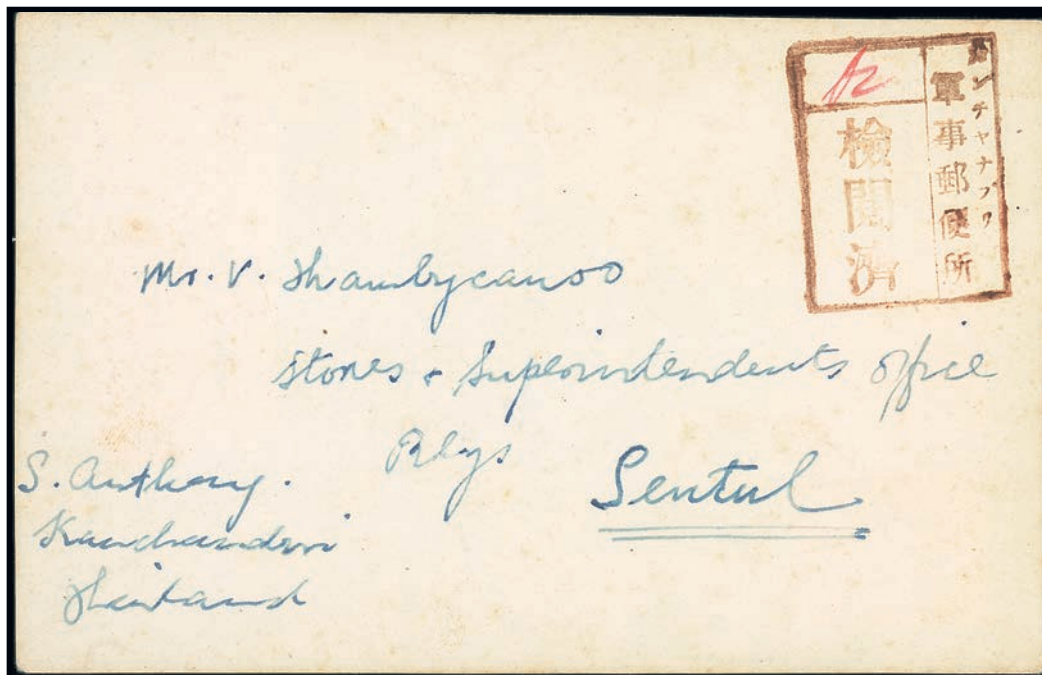 カンチャナブリ
軍事郵便所
検閲済
Mr. V. Thambycanoo
Stores & Superintendents Office
Rlys
Sentul
S. Anthony.
Kanchandri
Thailand